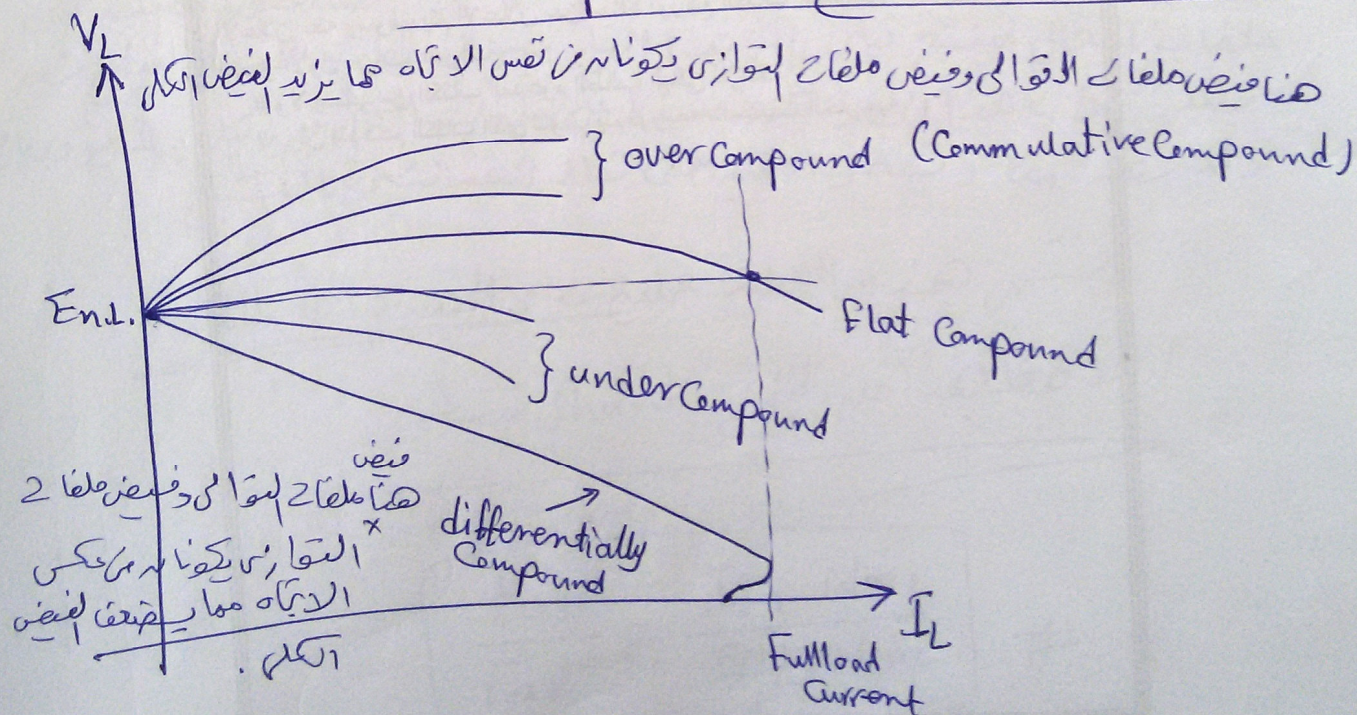 V_L
هنا فيض ملفات التوالى وفيض ملفات التوازى يكونان فى نفس الاتجاه مما يزيد الفيض الكلى
} over Compound (Commulative Compound)
En.L.
Flat Compound
} under Compound
فيض
هنا ملفات التوالى وفيض ملفات
التوازى يكونان فى عكس
الاتجاه مما يضعف الفيض
الكلى .
differentially
Compound
I_L
Full load
Current